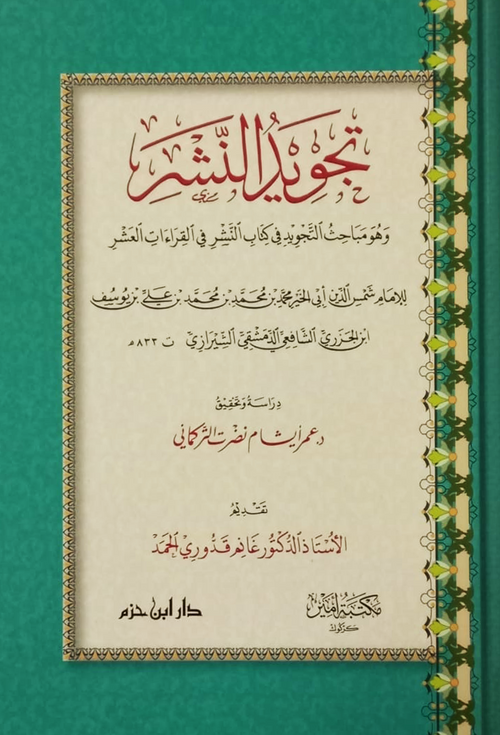 تجويد النشر
وَهُوَ مَبَاحِثُ التَّجْوِيدِ فِي كِتَابِ النَّشْرِ فِي القِرَاءَاتِ العَشْرِ
للإمام شمس الدين أبي الخير محمد بن محمد بن محمد بن علي بن يوسف
ابن الجزري الشافعي الدمشقي الشيرازي ت ٨٣٣ هـ
دراسة وتحقيق
د. عمر أيشام نضرت التركماني
تقديم
الأستاذ الدكتور غانم قدوري الحمد
مكتبة أمير
كركوك
دار ابن حزم